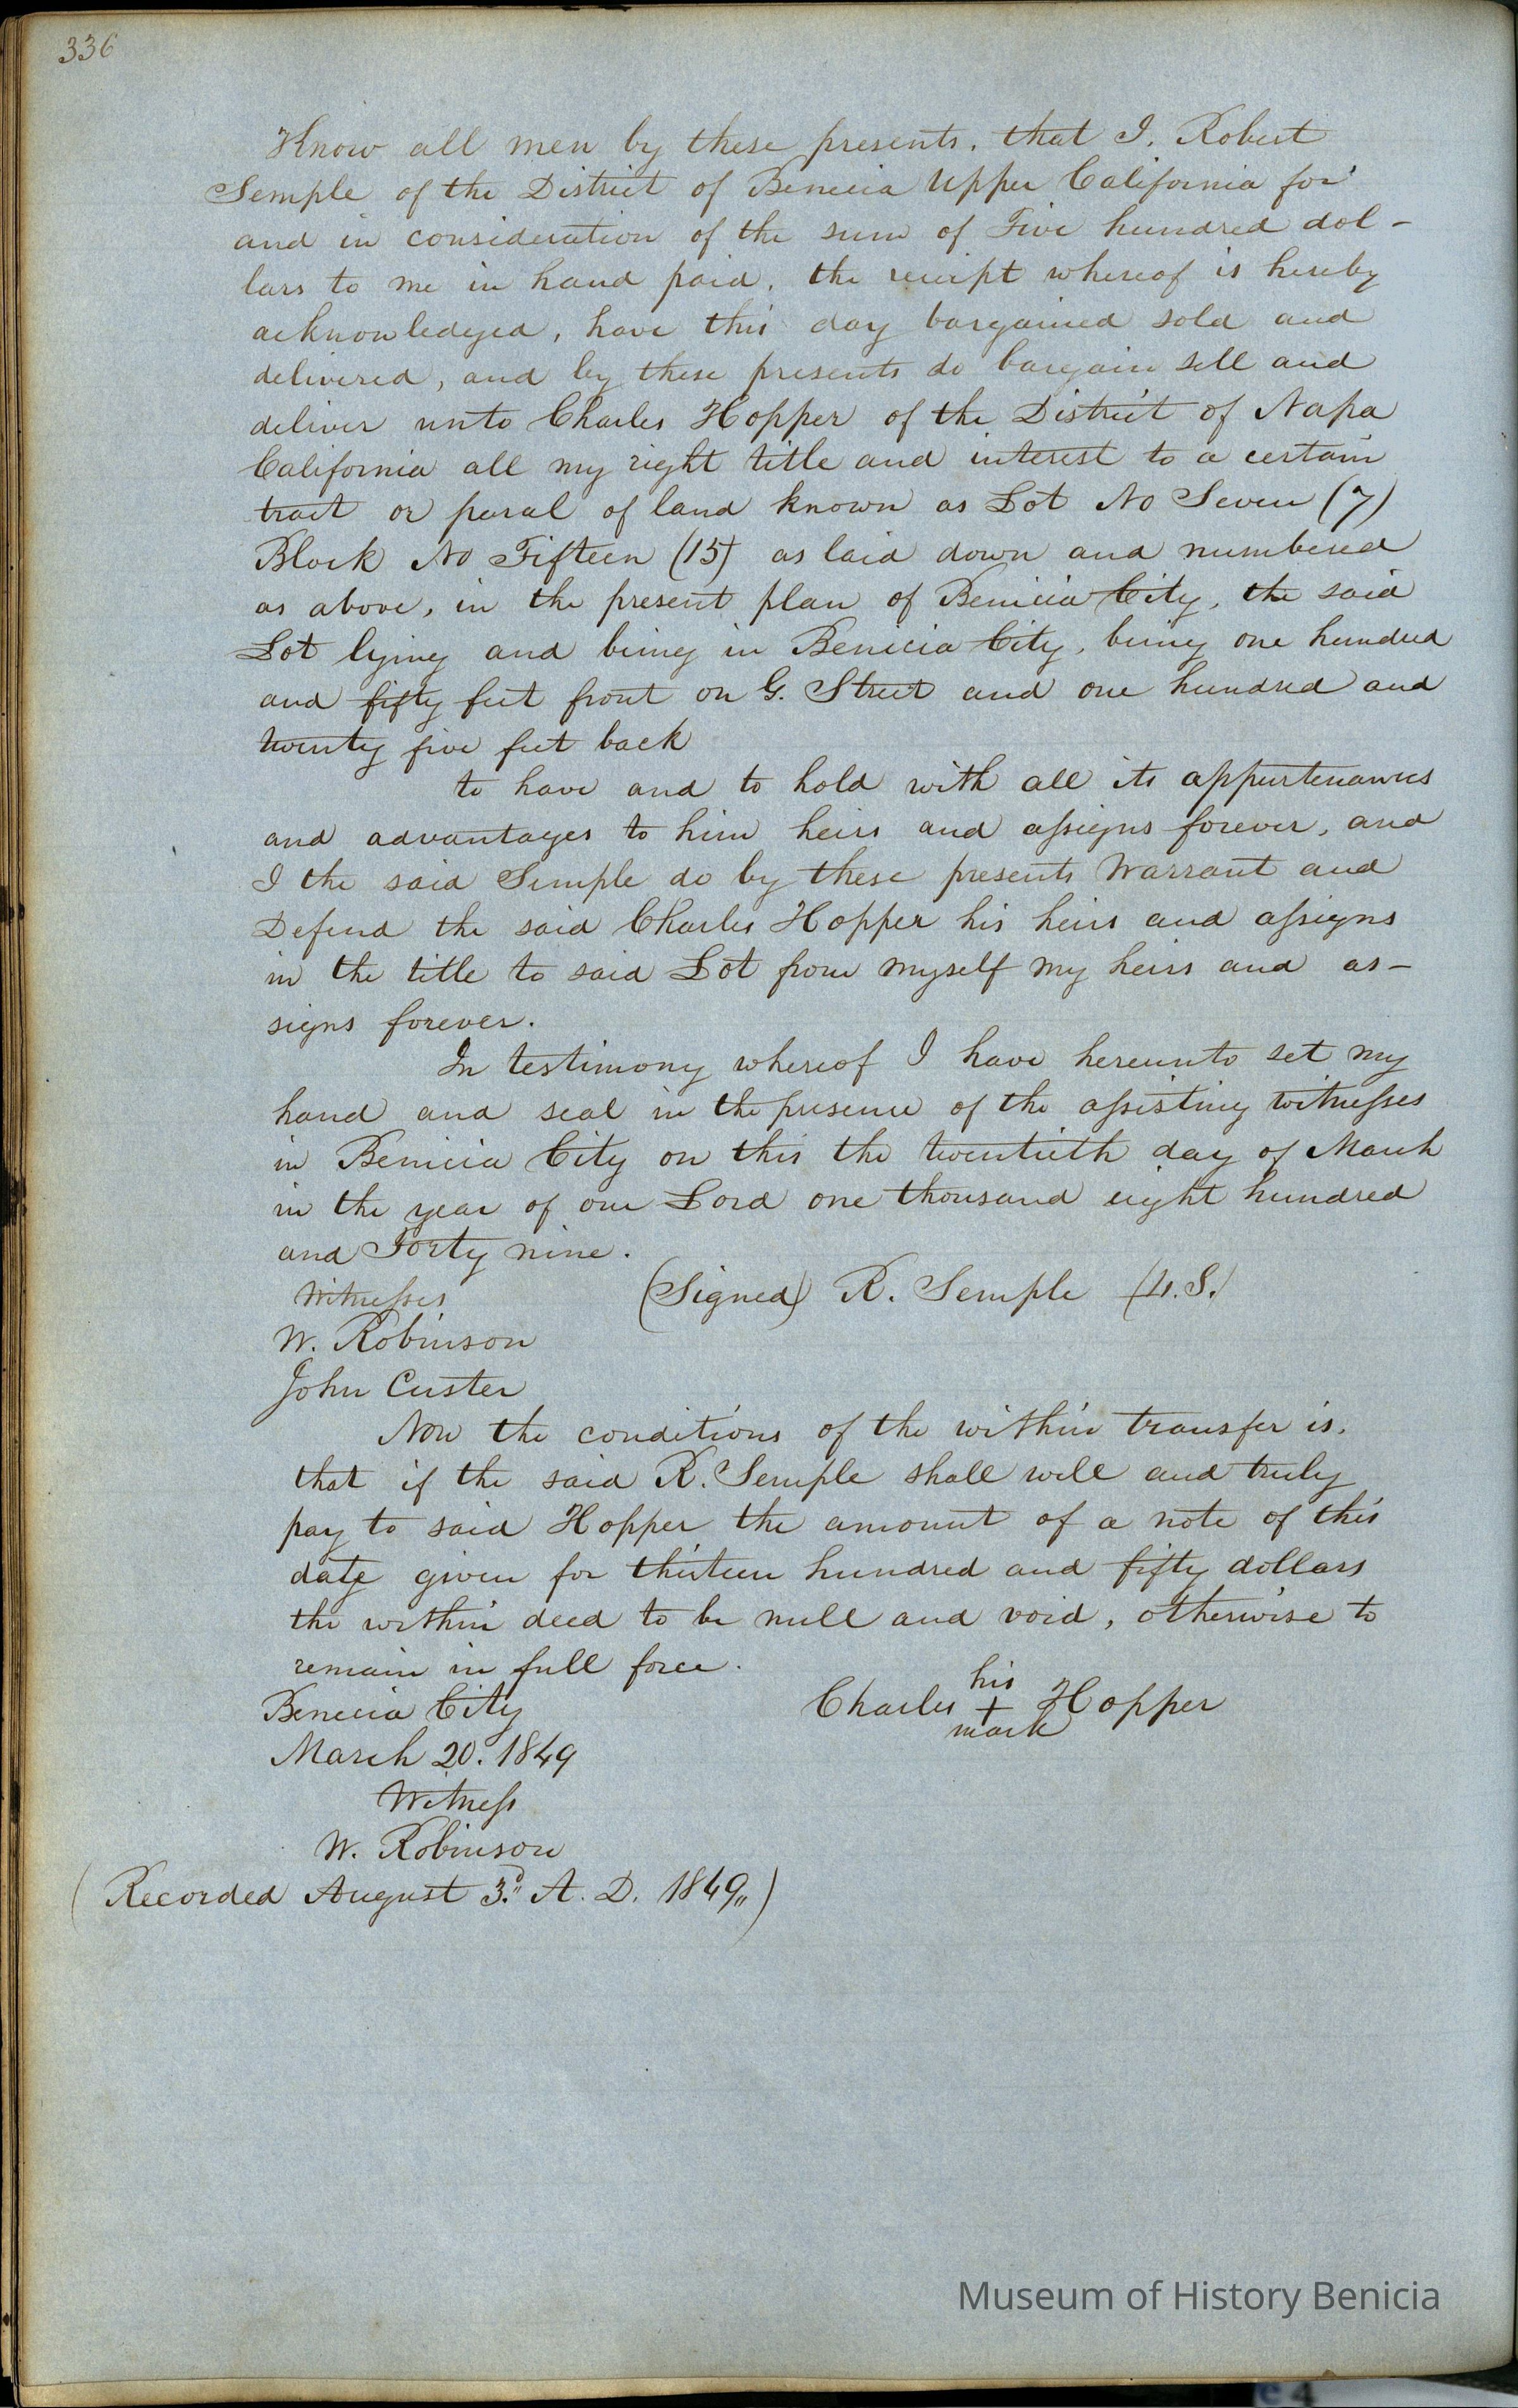 336
Know all men by these presents, that I, Robert
Semple of the District of Benicia Upper California for
and in consideration of the sum of Five hundred dol-
lars to me in hand paid, the receipt whereof is hereby
acknowledged, have this day bargained sold and
delivered, and by these presents do bargain sell and
deliver unto Charles Hopper of the District of Napa
California all my right title and interest to a certain
tract or parcel of land known as Lot No Seven (7)
Block No Fifteen (15) as laid down and numbered
as above, in the present plan of Benicia City, the said
Lot lying and being in Benicia City, being one hundred
and fifty feet front on G. Street and one hundred and
twenty five feet back
to have and to hold with all its appurtenances
and advantages to him heirs and assigns forever, and
I the said Semple do by these presents Warrant and
Defend the said Charles Hopper his heirs and assigns
in the title to said Lot from myself my heirs and as-
signs forever.
In testimony whereof I have hereunto set my
hand and seal in the presence of the assisting witnesses
in Benicia City on this the twentieth day of March
in the year of our Lord one thousand eight hundred
and Forty nine.
Witnesses (Signed) R. Semple (L.S.)
W. Robinson
John Custer
Now the conditions of the within transfer is,
that if the said R. Semple shall well and truly
pay to said Hopper the amount of a note of this
date given for thirteen hundred and fifty dollars
the within deed to be null and void, otherwise to
remain in full force.
Benecia City Charles his + mark Hopper
March 20. 1849
Witness
W. Robinson
(Recorded August 3.d A. D. 1849,,)
Museum of History Benicia